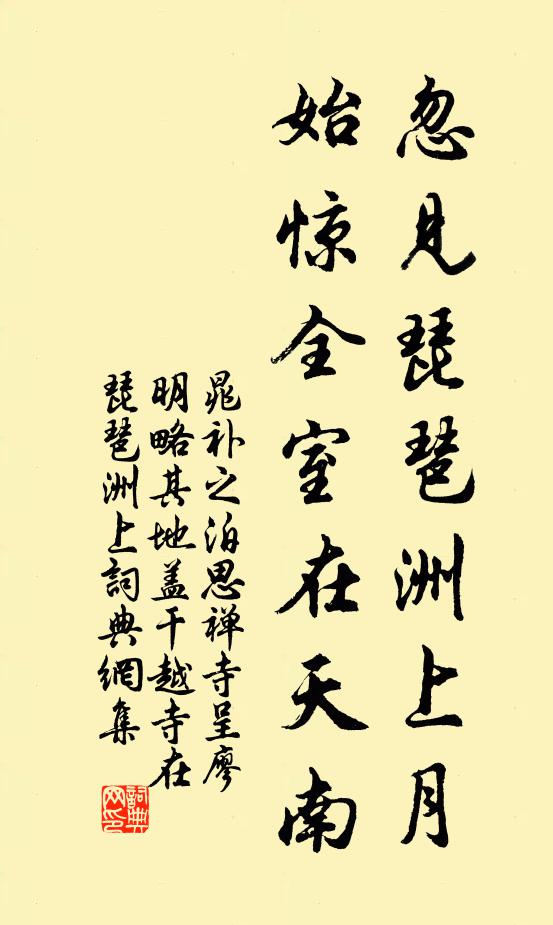 忽见琵琶洲上月
始惊全室在天南
晁补之泊思禅寺呈廖
明略其地盖干越寺在
琵琶洲上詞典網集
詞典网印